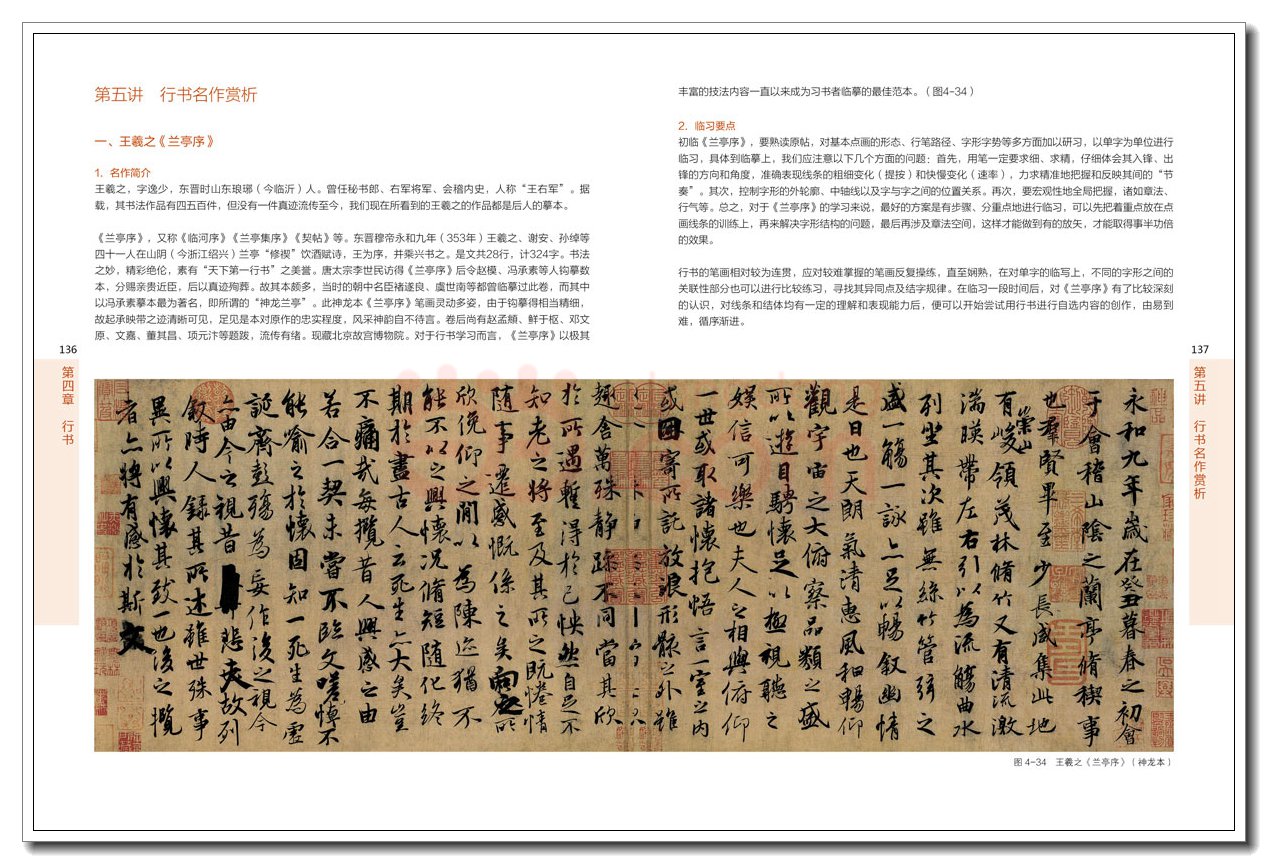 第五讲　行书名作赏析
一、王羲之《兰亭序》
1. 名作简介
王羲之，字逸少，东晋时山东琅琊（今临沂）人。曾任秘书郎、右军将军、会稽内史，人称“王右军”。据
载，其书法作品有四五百件，但没有一件真迹流传至今，我们现在所看到的王羲之的作品都是后人的摹本。
《兰亭序》，又称《临河序》《兰亭集序》《禊帖》等。东晋穆帝永和九年（353年）王羲之、谢安、孙绰等
四十一人在山阴（今浙江绍兴）兰亭“修禊”饮酒赋诗，王为序，并乘兴书之。是文共28行，计324字。书法
之妙，精彩绝伦，素有“天下第一行书”之美誉。唐太宗李世民访得《兰亭序》后令赵模、冯承素等人钩摹数
本，分赐亲贵近臣，后以真迹殉葬。故其本颇多，当时的朝中名臣褚遂良、虞世南等都曾临摹过此卷，而其中
以冯承素摹本最为著名，即所谓的“神龙兰亭”。此神龙本《兰亭序》笔画灵动多姿，由于钩摹得相当精细，
故起承映带之迹清晰可见，足见是本对原作的忠实程度，风采神韵自不待言。卷后尚有赵孟頫、鲜于枢、邓文
原、文嘉、董其昌、项元汴等题跋，流传有绪。现藏北京故宫博物院。对于行书学习而言，《兰亭序》以极其
136
第四章　行书
丰富的技法内容一直以来成为习书者临摹的最佳范本。（图4-34）
2. 临习要点
初临《兰亭序》，要熟读原帖，对基本点画的形态、行笔路径、字形字势等多方面加以研习，以单字为单位进行
临习，具体到临摹上，我们应注意以下几个方面的问题：首先，用笔一定要求细、求精，仔细体会其入锋、出
锋的方向和角度，准确表现线条的粗细变化（提按）和快慢变化（速率），力求精准地把握和反映其间的“节
奏”。其次，控制字形的外轮廓、中轴线以及字与字之间的位置关系。再次，要宏观性地全局把握，诸如章法、
行气等。总之，对于《兰亭序》的学习来说，最好的方案是有步骤、分重点地进行临习，可以先把着重点放在点
画线条的训练上，再来解决字形结构的问题，最后再涉及章法空间，这样才能做到有的放矢，才能取得事半功倍
的效果。
行书的笔画相对较为连贯，应对较难掌握的笔画反复操练，直至娴熟，在对单字的临写上，不同的字形之间的
关联性部分也可以进行比较练习，寻找其异同点及结字规律。在临习一段时间后，对《兰亭序》有了比较深刻
的认识，对线条和结体均有一定的理解和表现能力后，便可以开始尝试用行书进行自选内容的创作，由易到
难，循序渐进。
137
第五讲　行书名作赏析
永和九年歲在癸丑暮春之初會
于會稽山陰之蘭亭脩稧事
也羣賢畢至少長咸集此地
有崇山峻領茂林脩竹又有清流激
湍暎帶左右引以為流觴曲水
列坐其次雖無絲竹管弦之
盛一觴一詠亦足以暢叙幽情
是日也天朗氣清惠風和暢仰
觀宇宙之大俯察品類之盛
所以遊目騁懷足以極視聽之
娛信可樂也夫人之相與俯仰
一世或取諸懷抱悟言一室之内
或因寄所託放浪形骸之外雖
趣舍萬殊静躁不同當其欣
於所遇暫得於己怏然自足不
知老之將至及其所之既惓情
随事遷感慨係之矣向之所
欣俛仰之間以為陳迹猶不
能不以之興懷況脩短随化終
期於盡古人云死生亦大矣豈
不痛哉每攬昔人興感之由
若合一契未嘗不臨文嗟悼不
能喻之於懷固知一死生為虚
誕齊彭殤為妄作後之視今
亦由今之視昔悲夫故列
叙時人錄其所述雖世殊事
異所以興懷其致一也後之攬
者亦將有感於斯文
图 4-34　王羲之《兰亭序》（神龙本）